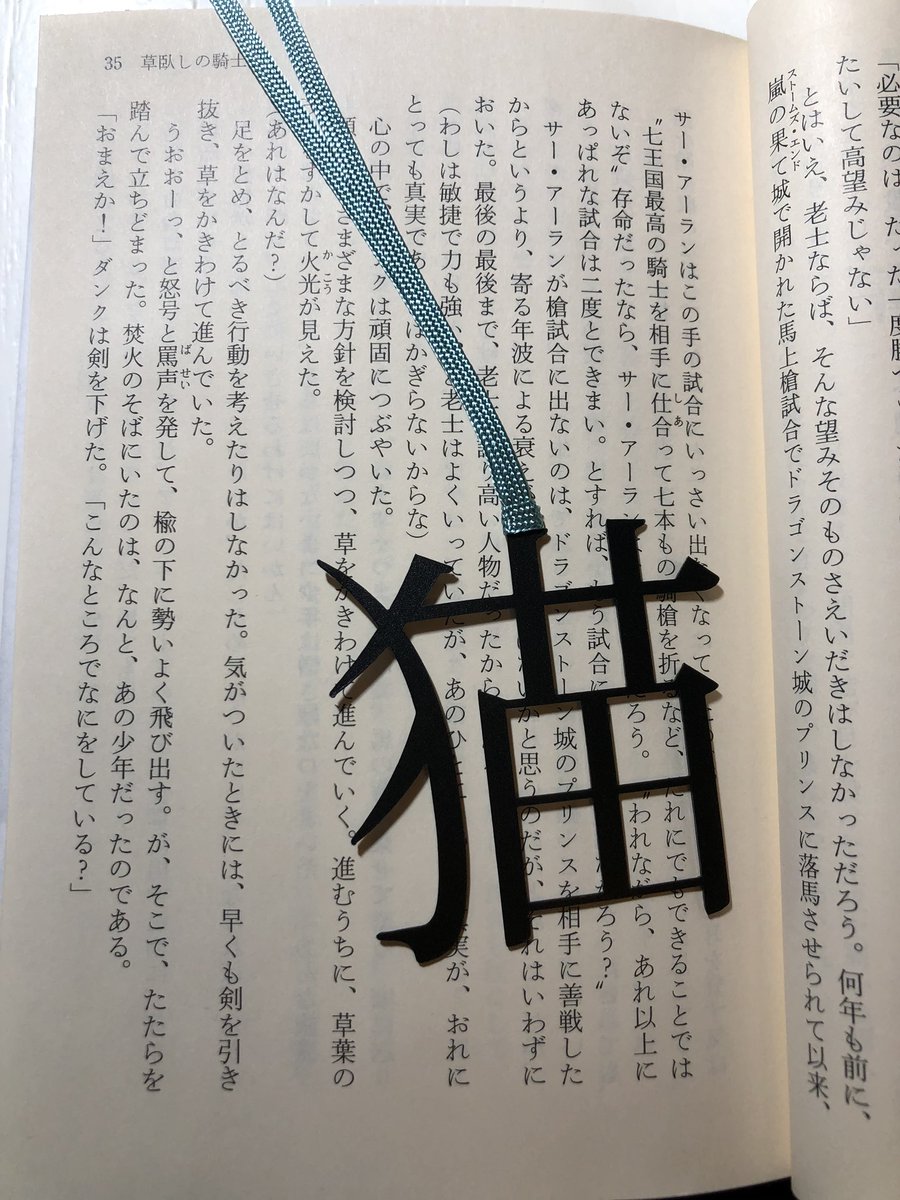 「必要なのは
たいして高望みじゃない」
とはいえ、老士ならば、そんな望みそのものさえいだきはしなかっただろう。何年も前に、
嵐の果て城で開かれた馬上槍試合でドラゴンストーン城のプリンスに落馬させられて以来、
ストームズ・エンド
35 草臥しの騎士
サー・アーランはこの手の試合にいっさい出なくなって
〝七王国最高の騎士を相手に仕合って七本もの騎槍を折るなど、だれにでもできることでは
しあ
ないぞ〟存命だったなら、サー・アーラン ろう。〝われながら、あれ以上に
あっぱれな試合は二度とできまい。とすれば、もう試合に だろう？〟
サー・アーランが槍試合に出ないのは、ドラゴンストーン城のプリンスを相手に善戦した
からというより、寄る年波による衰え かと思うのだが、それはいわずに
おいた。最後の最後まで、老士 り高い人物だったから
(わしは敏捷で力も強い と老士はよくいっていたが、あのひと 実が、おれに
とっても真実であ はかぎらないからな)
心の中で クは頑固につぶやいた。
さまざまな方針を検討しつつ、草をかきわけて進んでいく。進むうちに、草葉の
すかして火光が見えた。
かこう
(あれはなんだ？)
足をとめ、とるべき行動を考えたりはしなかった。気がついたときには、早くも剣を引き
抜き、草をかきわけて進んでいた。
うぉおーっ、と怒号と罵声を発して、楡の下に勢いよく飛び出す。が、そこで、たたらを
ばせい
踏んで立ちどまった。焚火のそばにいたのは、なんと、あの少年だったのである。
「おまえか！」ダンクは剣を下げた。「こんなところでなにをしている？」
猫